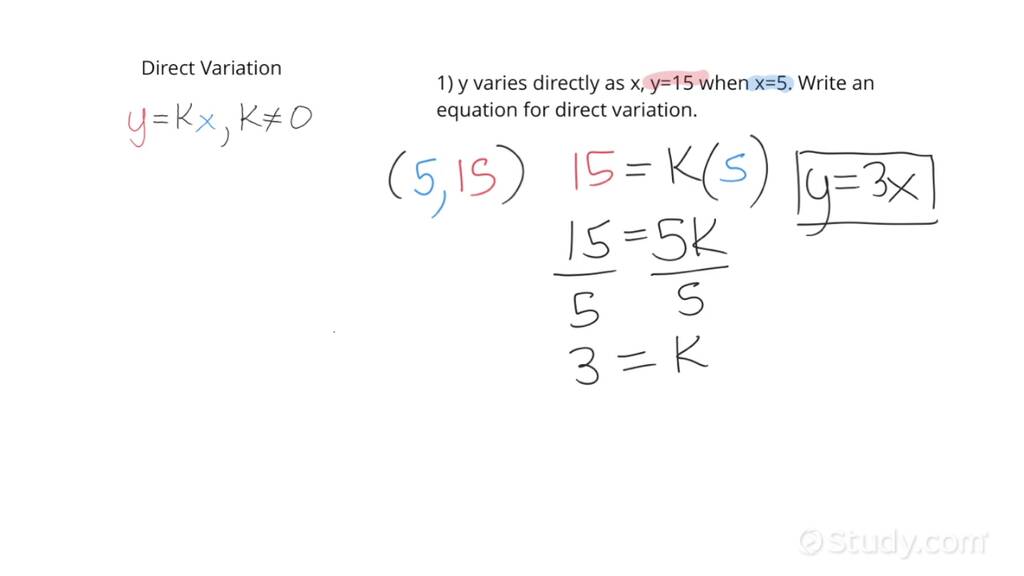 Direct Variation
y=Kx, K≠0
1) y varies directly as x, y=15 when x=5. Write an
equation for direct variation.
(5,15) 15=K(5) y=3x
15=5K
5 5
3=K
Study.com